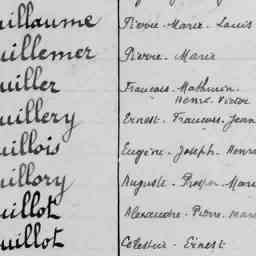 uillaume Pierre-Marie-Louis
uillemer Pierre-Marie
uiller François-Mathurin
Henri-Victor
uillery Ernest-François-Jean
uillois Eugène-Joseph-Henri
uillory Auguste-Prosper-Marie
uillot Alexandre-Pierre-Marie
uillot Célestin-Ernest